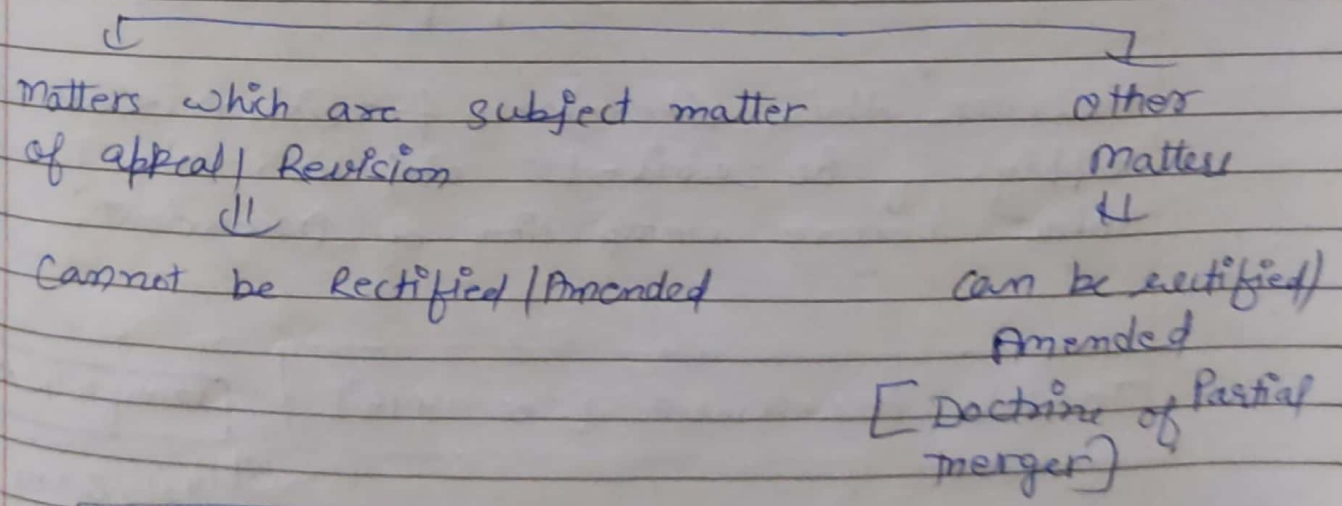 Matters which are subject matter
of appeal/Revision
Cannot be Rectified/Amended
other
matters
can be rectified/
Amended
[Doctrine of Partial
merger]